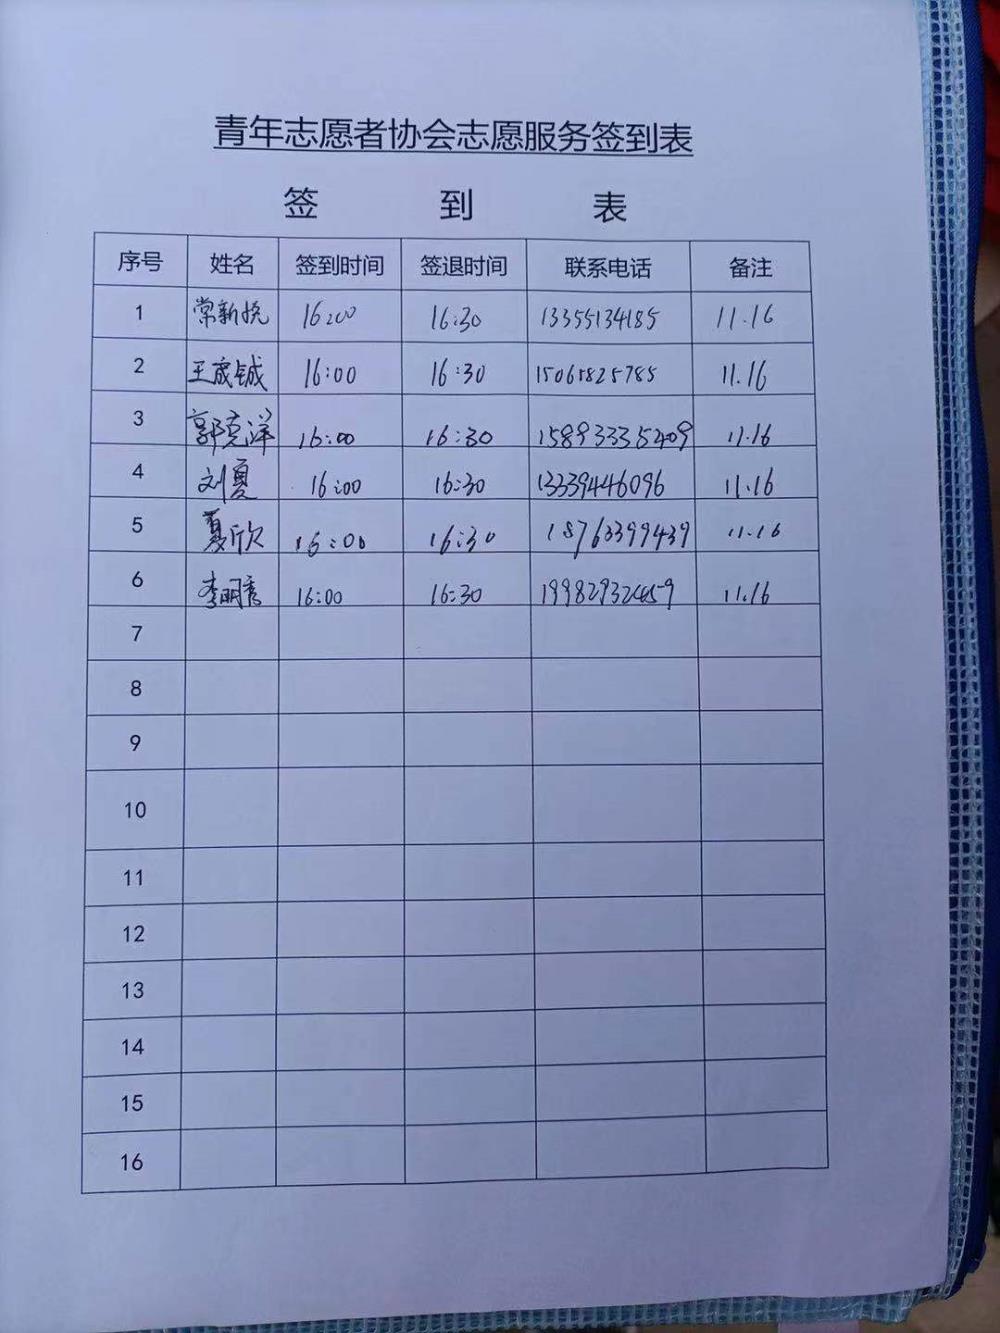 青年志愿者协会志愿服务签到表
签 到 表
序号 姓名 签到时间 签退时间 联系电话 备注
1 常新悦 16:00 16:30 13355134185 11.16
2 王晟铖 16:00 16:30 15065825785 11.16
3 郭克洋 16:00 16:30 15893335409 11.16
4 刘夏 16:00 16:30 13339446096 11.16
5 夏欣 16:00 16:30 18763399439 11.16
6 李明 16:00 16:30 11.16
7
8
9
10
11
12
13
14
15
16